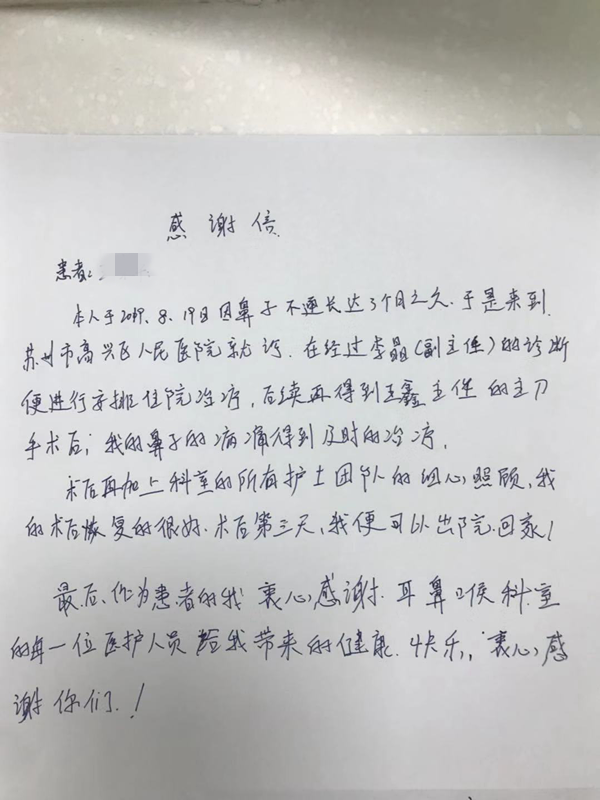 感谢信
患者:
本人于2019.8.19日因鼻子不通长达3个月之久.于是来到
苏州市高兴区人民医院就诊.在经过李晶(副主任)的诊断
便进行安排住院治疗,后续再得到王鑫主任的主刀
手术后;我的鼻子的病痛得到及时的治疗.
术后再加上科室的所有护士团队的细心照顾,我
的术后恢复的很好.术后第三天,我便可以出院.回家!
最后、作为患者的我衷心感谢.耳鼻口侯科室
的每一位医护人员给我带来的健康.快乐,衷心感
谢你们.!